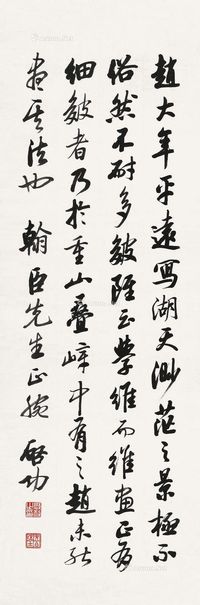 趙大年平遠寫湖天渺茫之景極不
俗然不耐多皴雖云學維而維畫正有
細皴者乃於重山疊嶂中有之趙未能
盡其法也 翰臣先生正腕 啟功